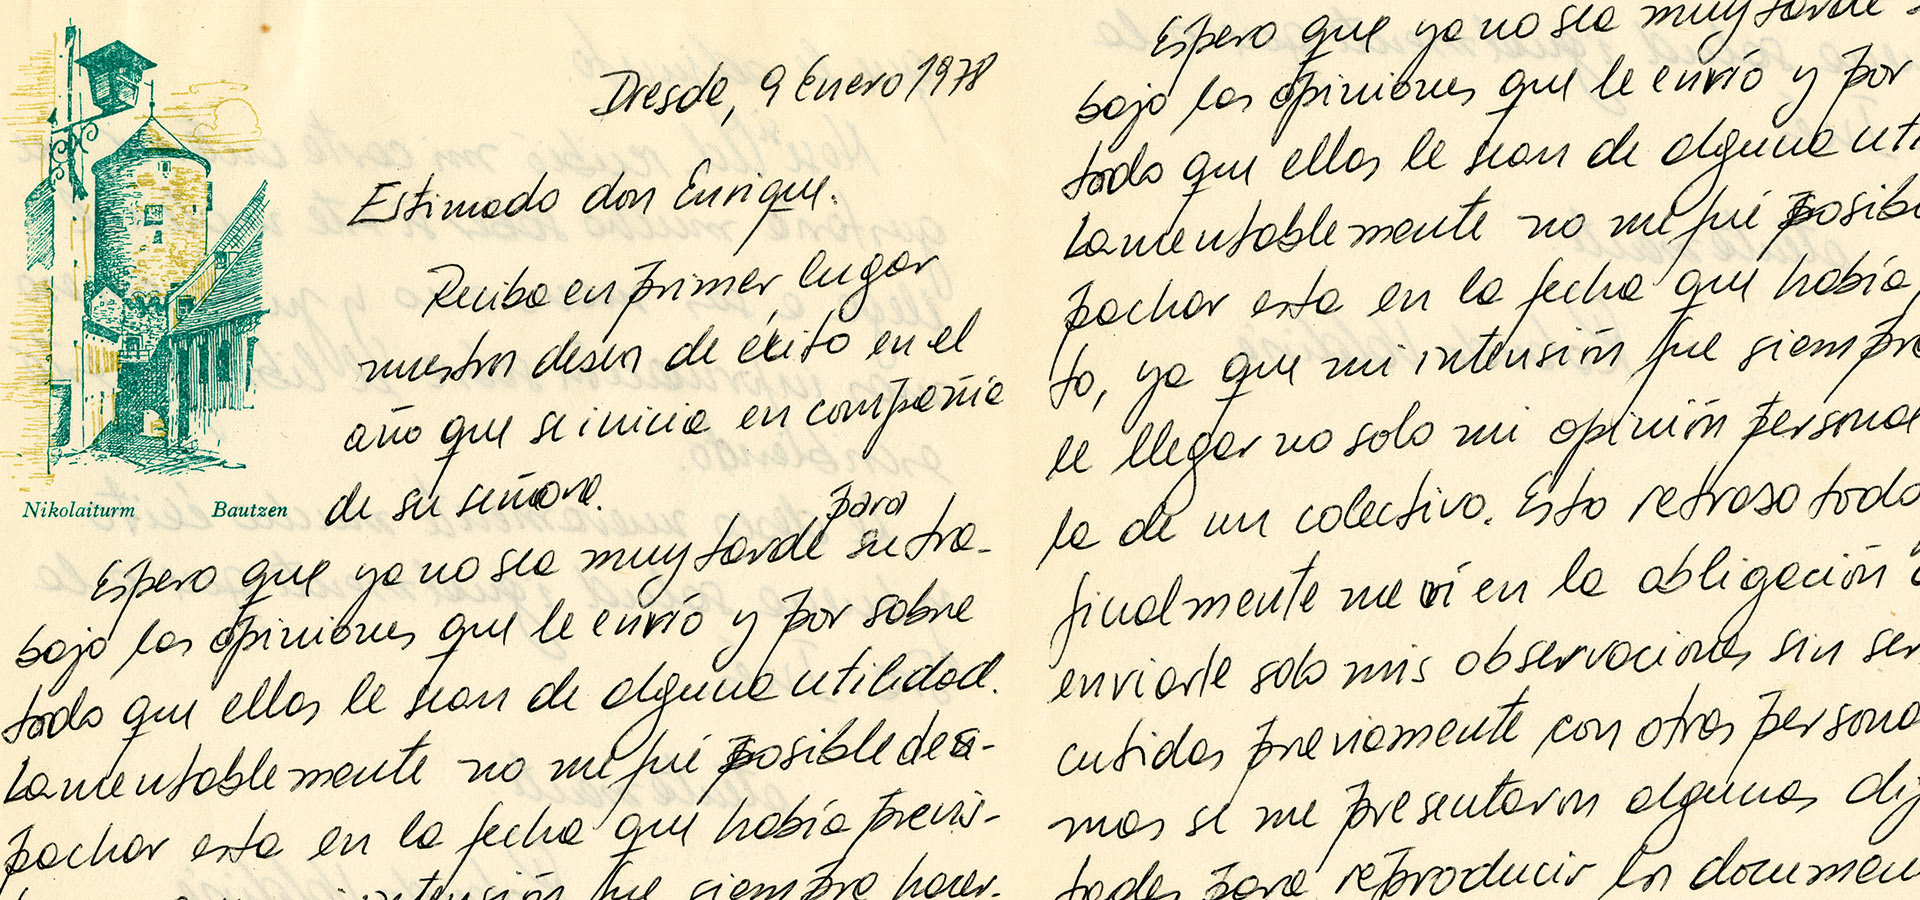 Dresde, 9 Enero 1978
Estimado don Enrique.
Reciba en primer lugar
nuestros deseos de éxito en el
año que se inicia en compañia
de su señora.
para
Espero que ya no sea muy tarde su tra-
bajo las opiniones que le envío y por sobre
todo que ellas le sean de alguna utilidad.
Lamentablemente no me fué posible des-
pachar esta en la fecha que había previs-
intensión fue siempre hacer-
Nikolaiturm Bautzen
Espero que ya no sea muy tarde
bajo las opiniones que le envío y por
todo que ellas le sean de alguna uti
Lamentablemente no me fué posibl
pachar esta en la fecha que había
to, ya que mi intensión fue siempre
le llegar no solo mi opinión persona
la de un colectivo. Esto retraso todo
finalmente me ví en la obligación
enviarle solo mis observaciones sin ser
cutidas previamente con otras persona
mas se me presentaron algunas dif
tades para reproducir los documen